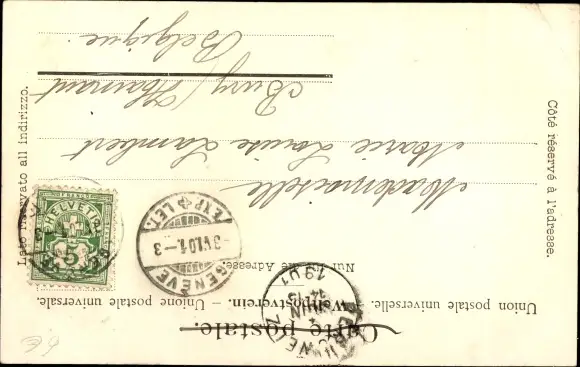 Carte postale.
Union postale universelle. — Weltpostverein. — Unione postale universale.
Nur für die Adresse.
Côté réservé à l'adresse.
Lato riservato all indirizzo.
HELVETIA
5
GENÈVE
-3 VI.01.-3
EXP. LET.
JUIN
1901
Mademoiselle
Marie Louise Lambert
Bury / Hainaut
Belgique
6€